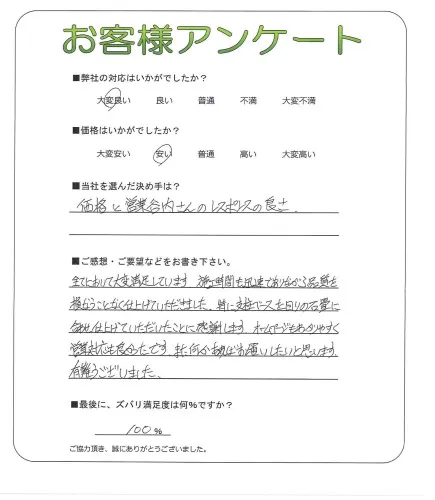 お客様アンケート
■弊社の対応はいかがでしたか？
大変良い 良い 普通 不満 大変不満
■価格はいかがでしたか？
大変安い 安い 普通 高い 大変高い
■当社を選んだ決め手は？
価格と営業合内さんのレスポンスの良さ。
■ご感想・ご要望などをお書き下さい。
全てにおいて大変満足しています 施工時間も迅速でありながら品質を
損なうことなく仕上げていただきました。特に支柱ベースを回りの石畳に
合わせ仕上げていただいたことに感謝します ホームページもわかりやすく
営業対応も良かったです。また何かあればお願いしたいと思います
有難うございました。
■最後に、ズバリ満足度は何％ですか？
100％
ご協力頂き、誠にありがとうございました。